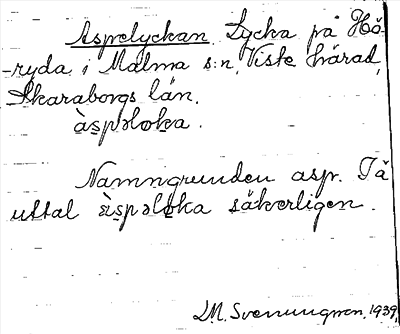 Aspelyckan. Lycka på Hä-
-ryda i Malma s:n, Viste härad,
Skaraborgs län.
àspəlɷka.
Namngrunden asp. Så
uttal àspəlɷka säkerligen.
M. Svenungsson, 1939,